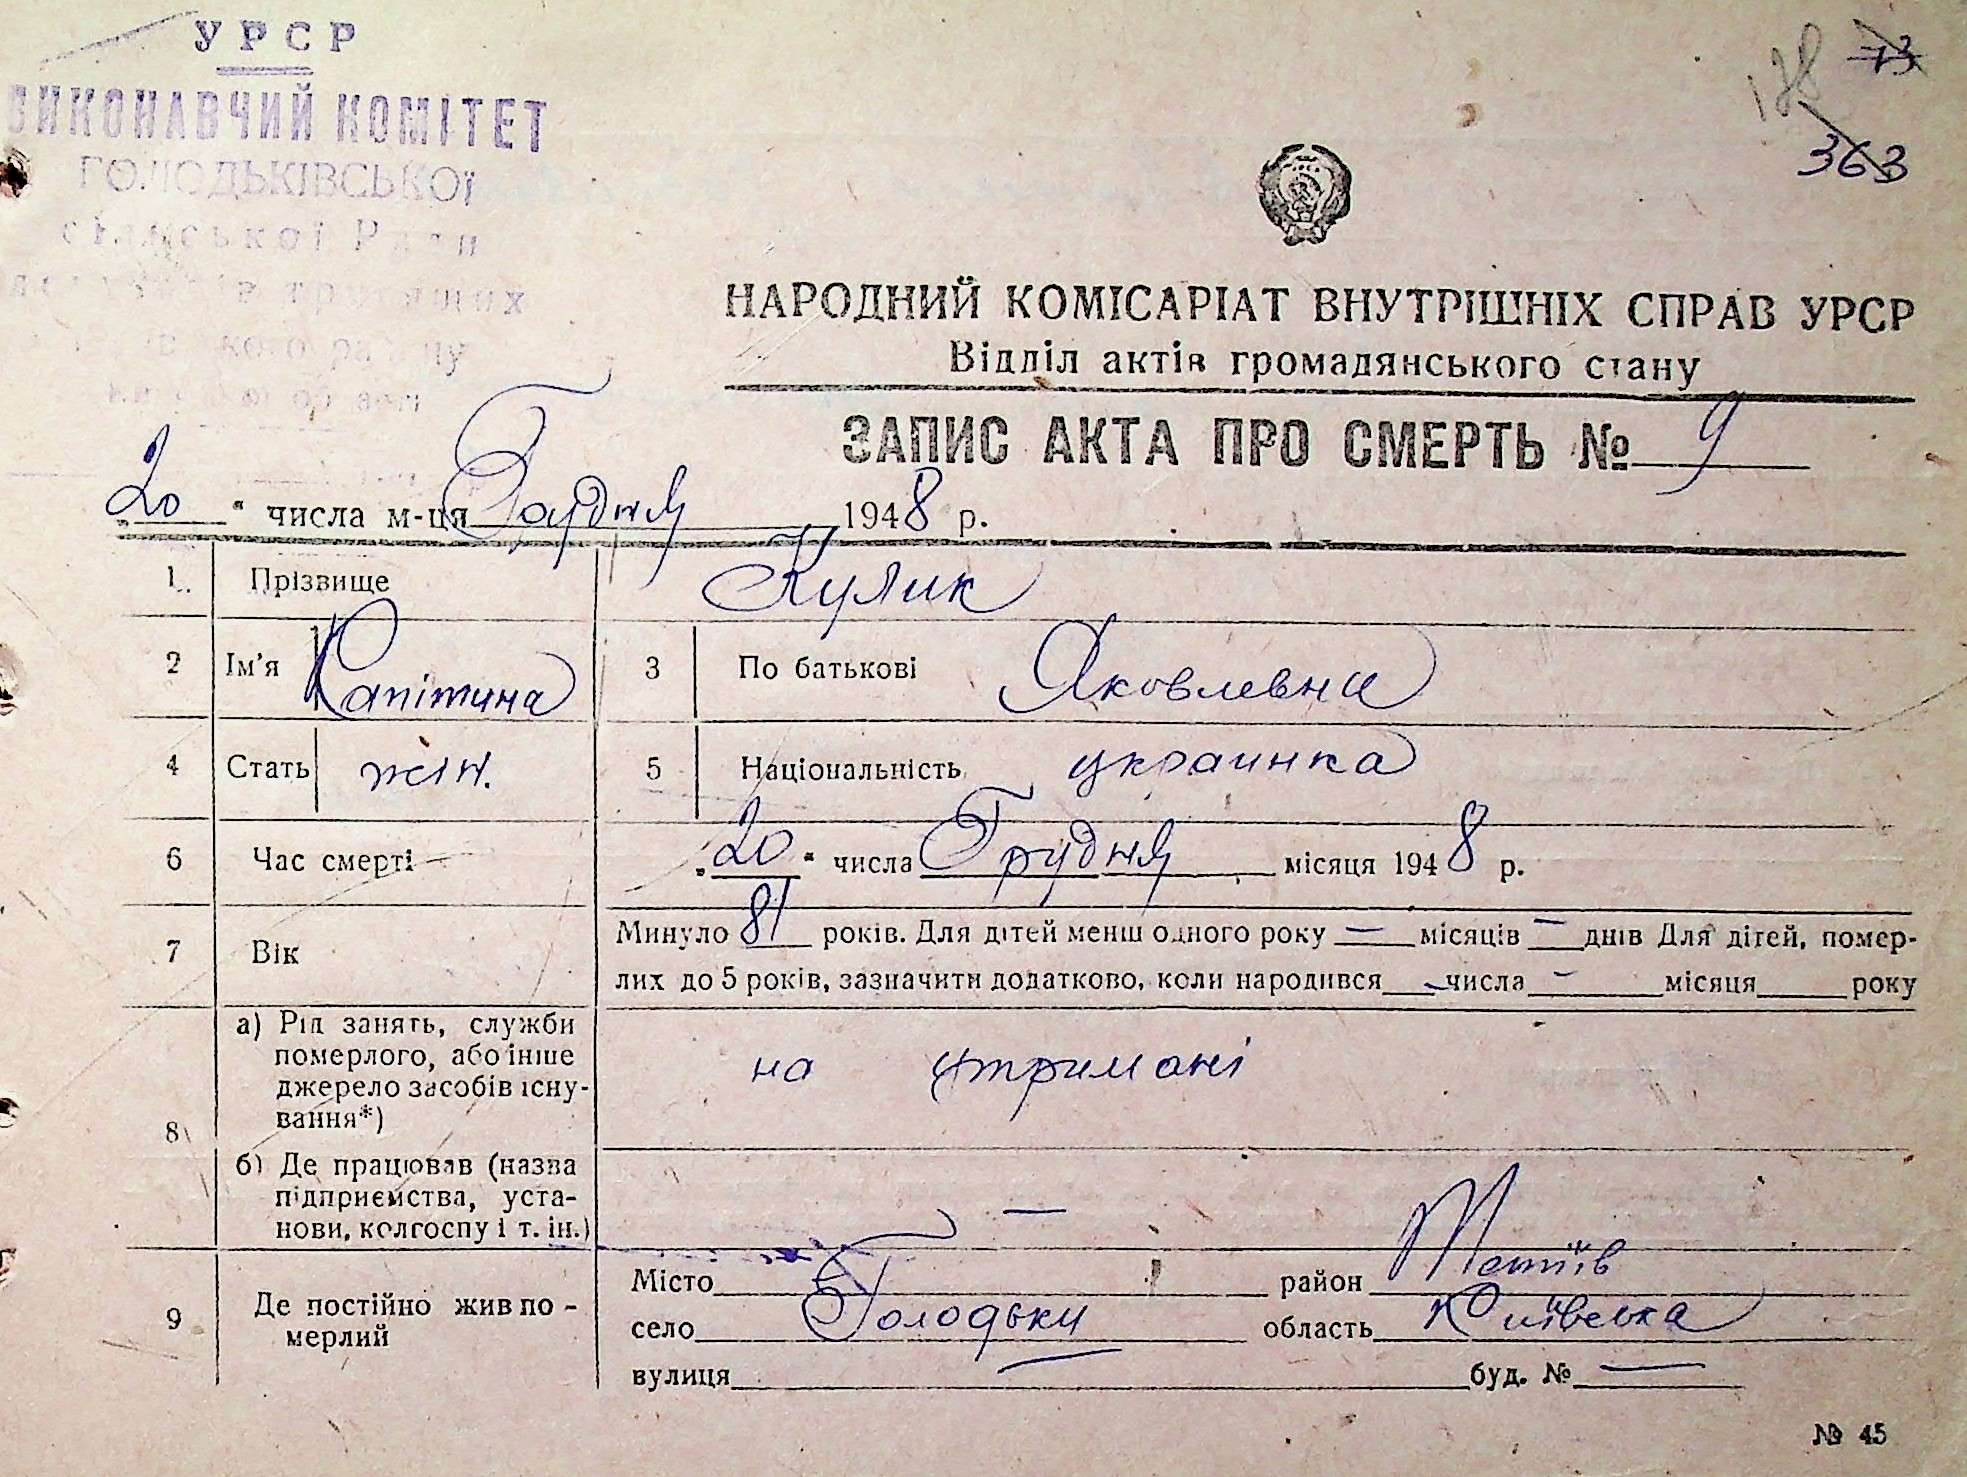 УРСР
ВИКОНАВЧИЙ КОМІТЕТ
ГОЛОДЬКІВСЬКОЇ
сільської Ради
128 73
363
НАРОДНИЙ КОМІСАРІАТ ВНУТРІШНІХ СПРАВ УРСР
Відділ актів громадянського стану
ЗАПИС АКТА ПРО СМЕРТЬ № 9
„20" числа м-ця Грудня 1948 р.
1. Прізвище Кулик
2 Ім'я Капітина 3 По батькові Яковлевна
4 Стать жін. 5 Національність украинка
6 Час смерті „20" числа Грудня місяця 1948 р.
7 Вік Минуло 81 років. Для дітей менш одного року — місяців — днів Для дітей, помер-
лих до 5 років, зазначити додатково, коли народився - числа - місяця року
8 а) Рід занять, служби
померлого, або інше
джерело засобів існу-
вання*) на утримані
б) Де працював (назва
підприємства, уста-
нови, колгоспу і т. ін.) —
9 Де постійно жив по-
мерлий
Місто район Тетіїв
село Голодьки область Київська
вулиця буд. № —
№ 45